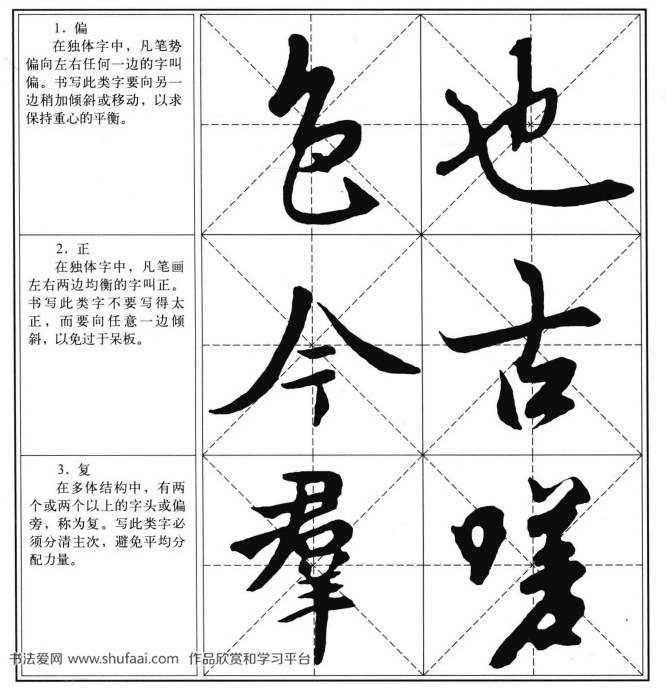 1. 偏
在独体字中，凡笔势
偏向左右任何一边的字叫
偏。书写此类字要向另一
边稍加倾斜或移动，以求
保持重心的平衡。
色 也
2. 正
在独体字中，凡笔画
左右两边均衡的字叫正。
书写此类字不要写得太
正，而要向任意一边倾
斜，以免过于呆板。
今 古
3. 复
在多体结构中，有两
个或两个以上的字头或偏
旁，称为复。写此类字必
须分清主次，避免平均分
配力量。
羣 嗟
书法爱网 www.shufaai.com 作品欣赏和学习平台